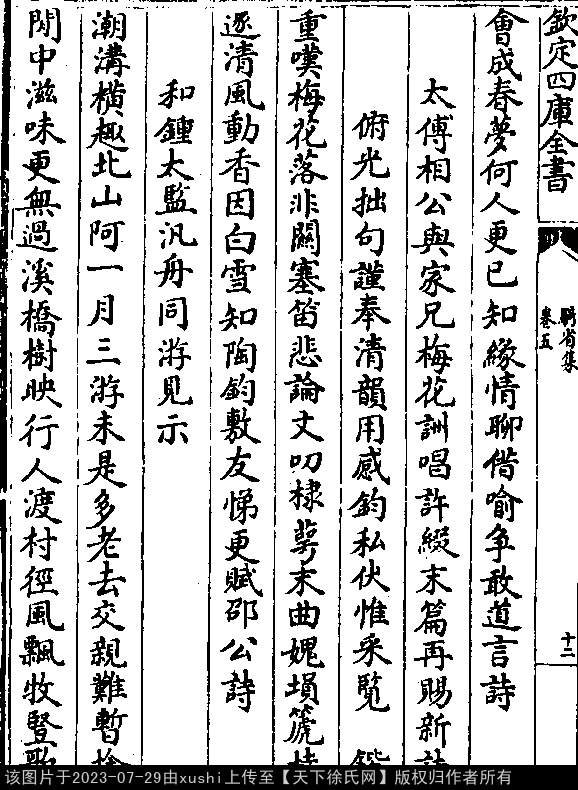 欽定四庫全書
騎省集
卷五
十二
會成春夢何人更已知緣情聊借喻争敢道言詩
太傅相公與家兄梅花詶唱許綴末篇再賜新
俯光拙句謹奉清韻用感鈞私伏惟采覧
重嘆梅花落非關塞笛悲論文叨棣萼末曲媿塤箎
逐清風動香因白雪知陶鈞敷友悌更賦邵公詩
和鍾太監汎舟同游見示
潮溝横趣北山阿一月三游未是多老去交親難暫捨
閒中滋味更無過溪橋樹映行人渡村徑風飄牧豎歌
该图片于2023-07-29由xushi上传至【天下徐氏网】版权归作者所有